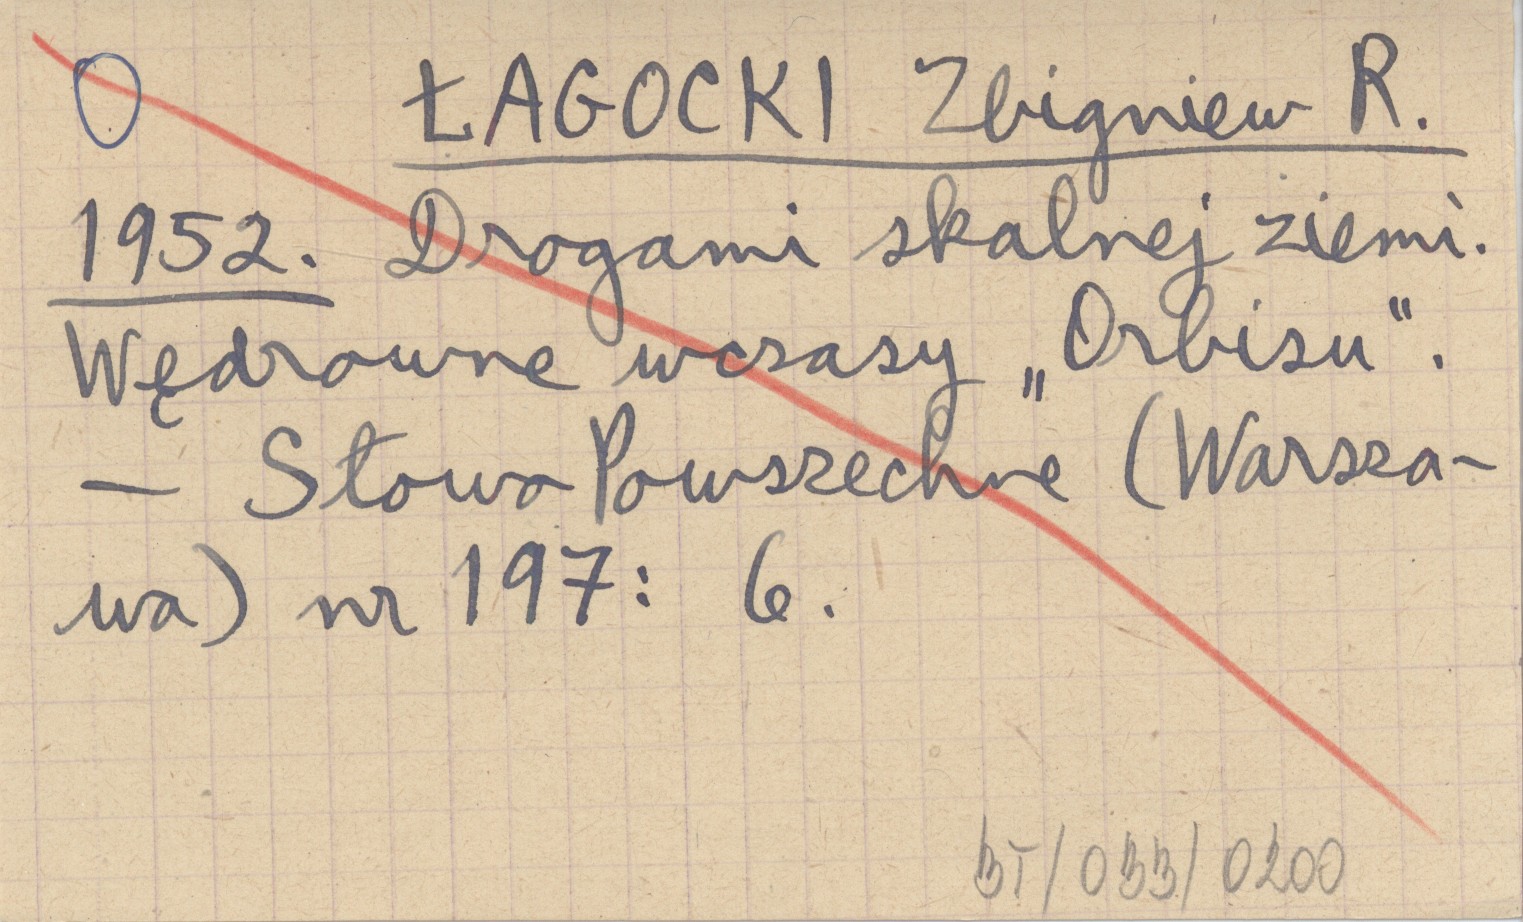 O ŁAGOCKI Zbigniew R.
1952. Drogami skalnej ziemi.
Wędrowne wczasy „Orbisu".
— Słowo Powszechne (Warsza-
wa) nr 197: 6.
BT/033/0200